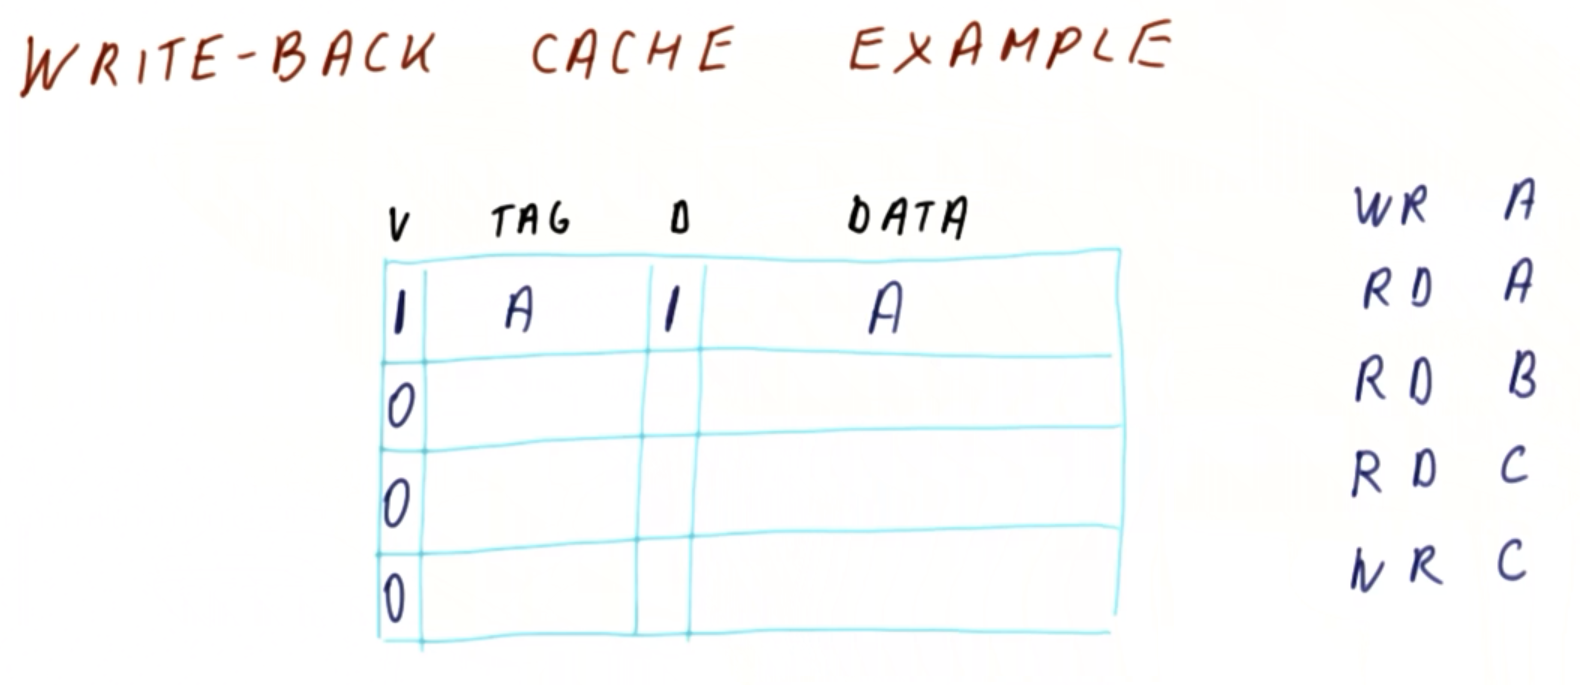 WRITE-BACK CACHE EXAMPLE
V TAG D DATA
1 A 1 A
0
0
0
WR A
RD A
RD B
RD C
WR C